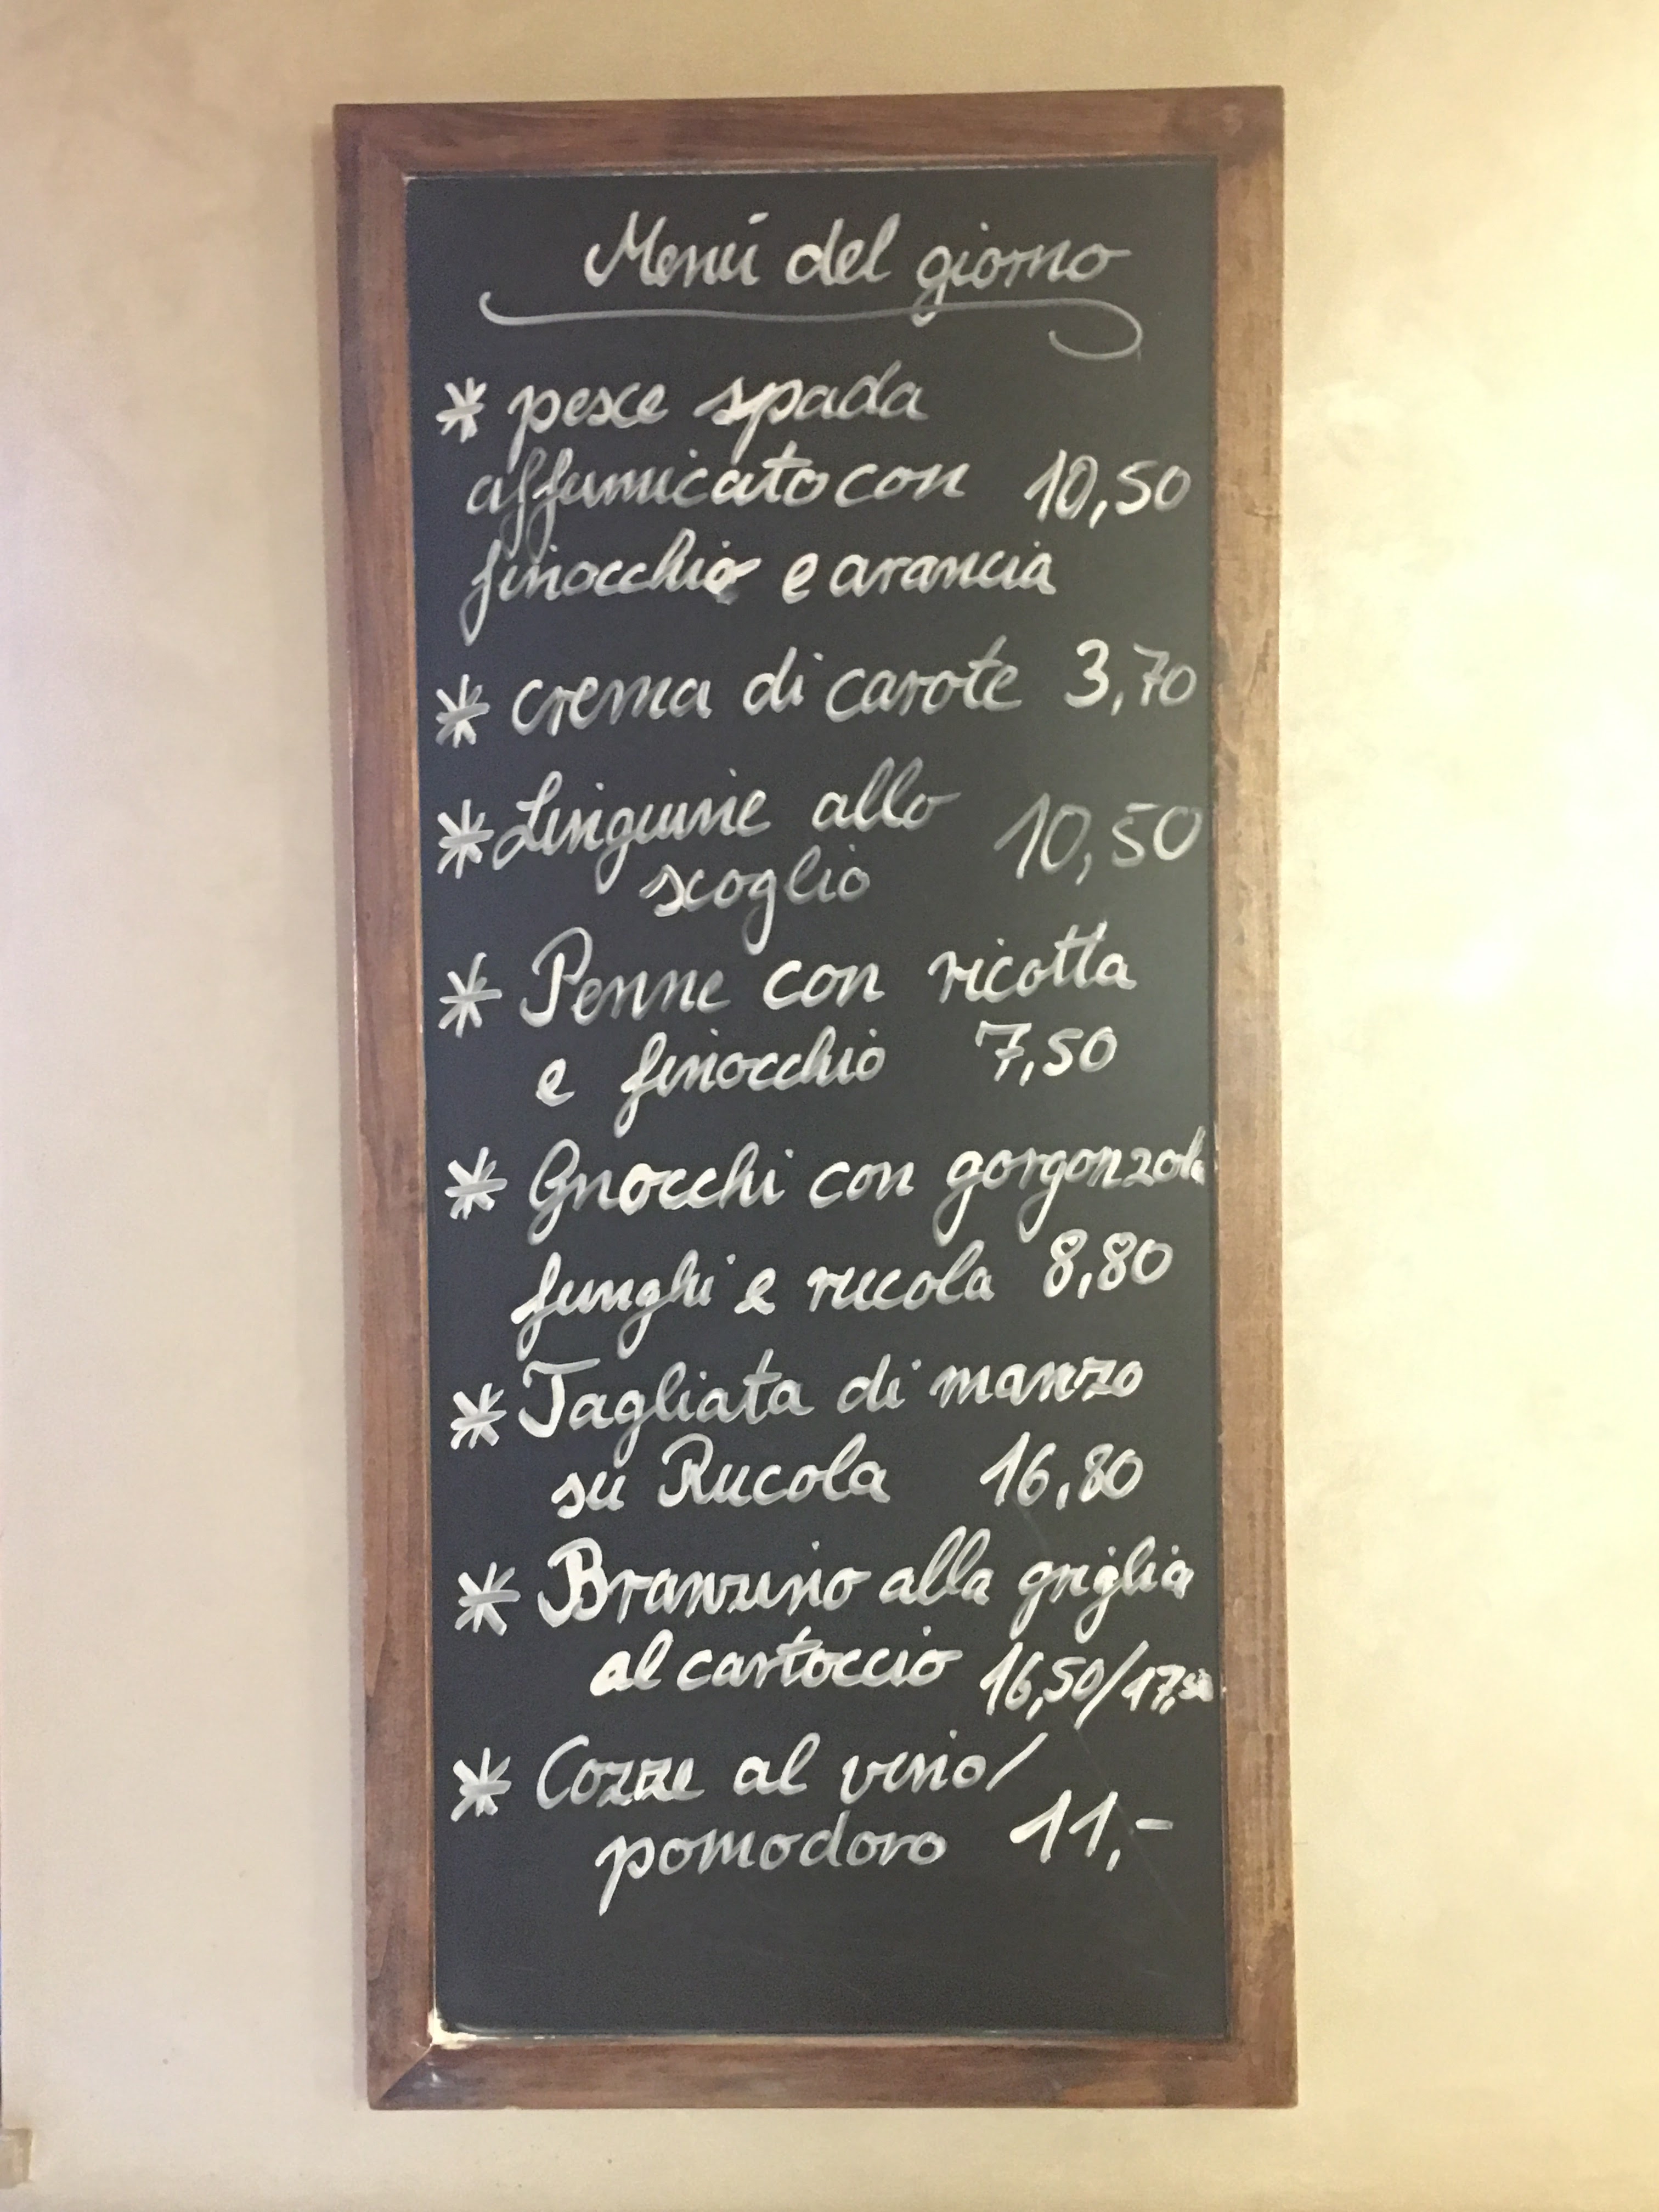 Menú del giorno
* pesce spada
affumicato con 10,50
finocchio e arancia
* crema di carote 3,70
* Linguine allo 10,50
scoglio
* Penne con ricotta
e finocchio 7,50
* Gnocchi con gorgonzola
funghi e rucola 8,80
* Tagliata di manzo
su Rucola 16,80
* Branzino alla griglia
al cartoccio 16,50/17,50
* Cozze al vino/
pomodoro 11,-